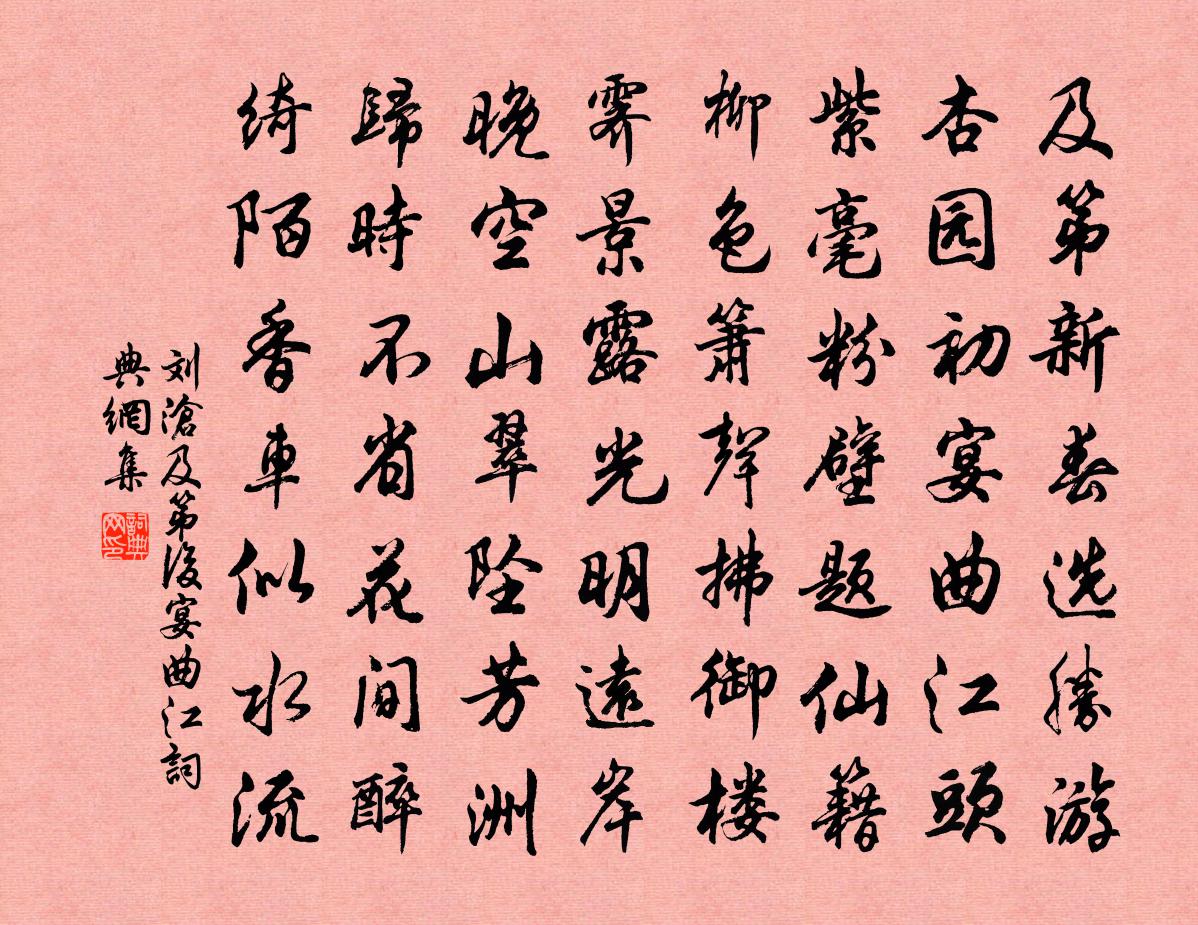 及第新春选勝游
杏园初宴曲江頭
紫毫粉壁题仙籍
柳色箫聲拂御楼
霁景露光明遠岸
晚空山翠坠芳洲
歸時不省花间醉
绮陌香車似水流
刘滄及第後宴曲江詞
典網集
詞典网印